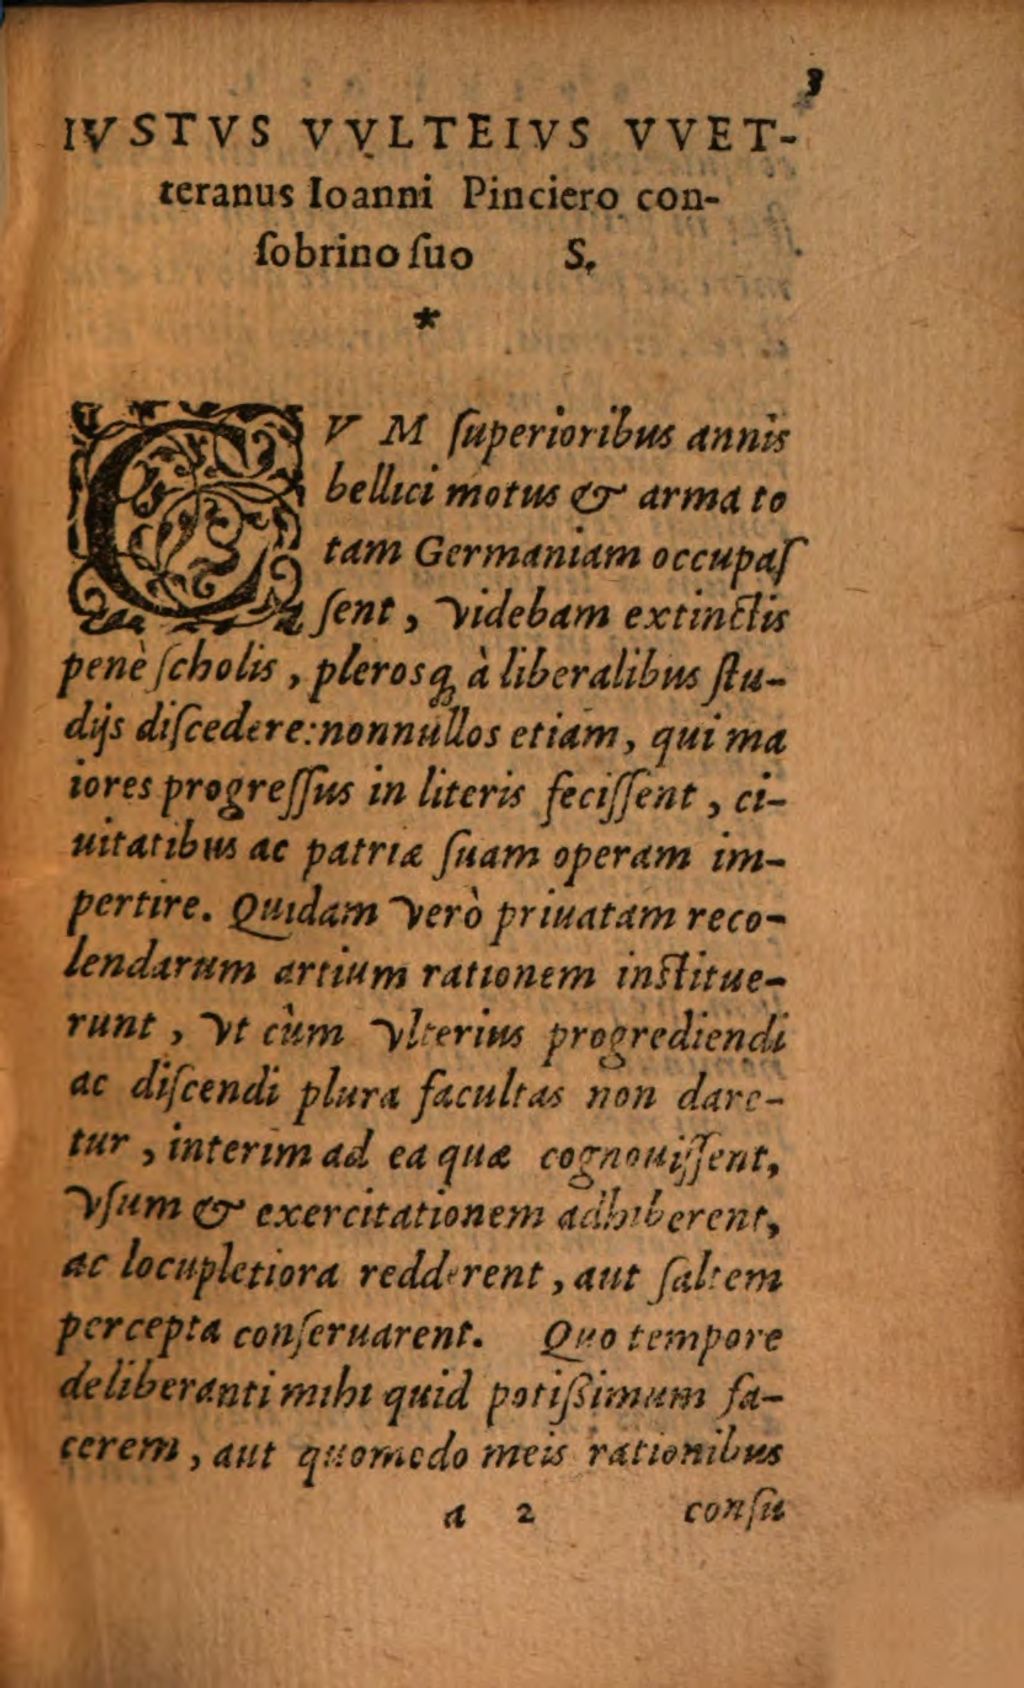 3
IVSTVS VVLTEIVS VVET-
teranus Ioanni Pinciero con-
ſobrino ſuo S.
*
CVM ſuperioribus annis
bellici motus & arma to
tam Germaniam occupaſ
ſent, videbam extinctis
penè ſcholis, plerosq; à liberalibus ſtu-
dijs diſcedere: nonnullos etiam, qui ma
iores progreſſus in literis feciſſent, ci-
uitatibus ac patriæ ſuam operam im-
pertire. Quidam verò priuatam reco-
lendarum artium rationem inſtitue-
runt, vt cùm vlterius progrediendi
ac diſcendi plura facultas non dare-
tur, interim ad ea quæ cognouiſſent,
vſum & exercitationem adhiberent,
ac locupletiora redderent, aut ſaltem
percepta conſeruarent. Quo tempore
deliberanti mihi quid potiſſimum fa-
cerem, aut quomodo meis rationibus
a 2 conſu